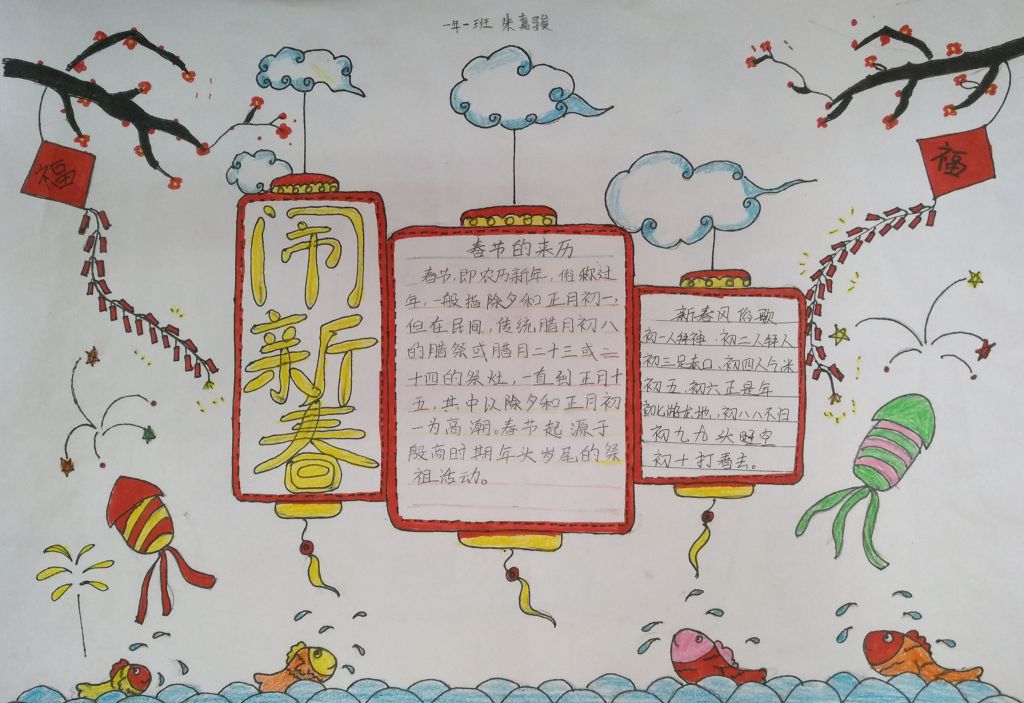 一年一班
福
福
闹
新
春
春节的来历
春节,即农历新年,俗称过
年,一般指除夕和正月初一,
但在民间,传统腊月初八
的腊祭或腊月二十三或二
十四的祭灶,一直到正月十
五,其中以除夕和正月初
一为高潮。春节起源于
殷商时期年头岁尾的祭
祖活动。
新春风俗歌
初一人拜神,初二人拜人
初三是赤口,初四人乞米
初五,初六正是年
初八八不归
初九九头空
初十打春去。